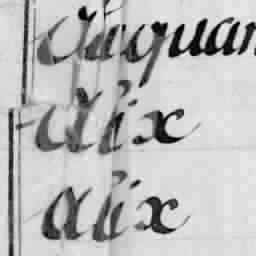 aliquan
alix
alix